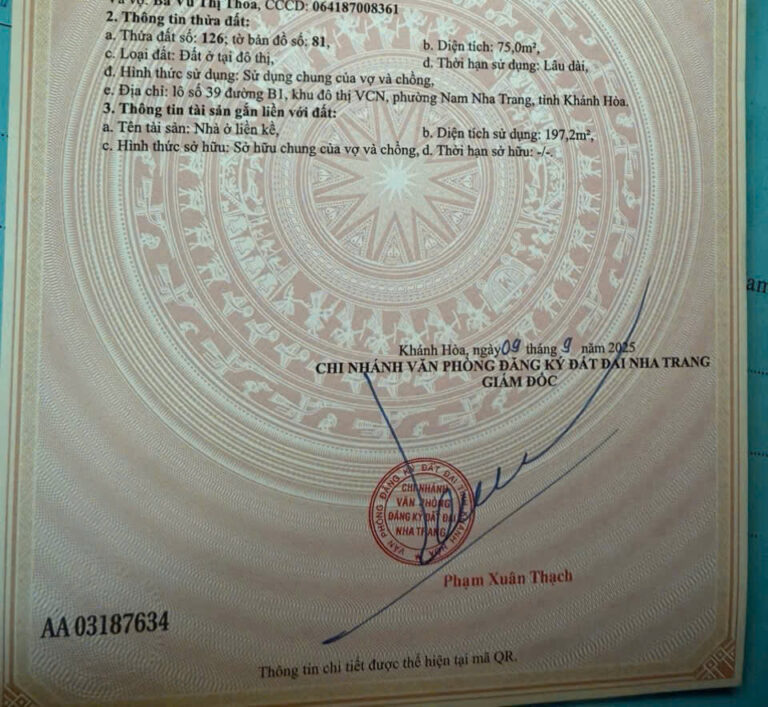 và vợ: Bà Vũ Thị Thoa, CCCD: 064187008361
2. Thông tin thửa đất:
a. Thửa đất số: 126; tờ bản đồ số: 81,
b. Diện tích: 75,0m²,
c. Loại đất: Đất ở tại đô thị,
d. Thời hạn sử dụng: Lâu dài,
đ. Hình thức sử dụng: Sử dụng chung của vợ và chồng,
e. Địa chỉ: lô số 39 đường B1, khu đô thị VCN, phường Nam Nha Trang, tỉnh Khánh Hòa.
3. Thông tin tài sản gắn liền với đất:
a. Tên tài sản: Nhà ở liền kề,
b. Diện tích sử dụng: 197,2m²,
c. Hình thức sở hữu: Sở hữu chung của vợ và chồng, d. Thời hạn sở hữu: -/-.
Khánh Hòa, ngày 09 tháng 9 năm 2025
CHI NHÁNH VĂN PHÒNG ĐĂNG KÝ ĐẤT ĐAI NHA TRANG
GIÁM ĐỐC
VĂN PHÒNG ĐĂNG KÝ ĐẤT ĐAI TỈNH KHÁNH HÒA
CHI NHÁNH
VĂN PHÒNG
ĐĂNG KÝ ĐẤT ĐAI
NHA TRANG
Phạm Xuân Thạch
AA 03187634
Thông tin chi tiết được thể hiện tại mã QR.